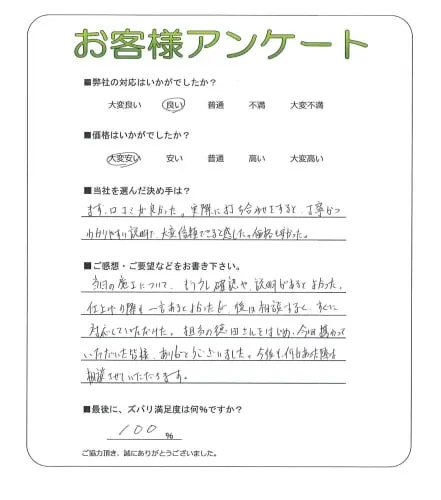 お客様アンケート
■弊社の対応はいかがでしたか？
大変良い 良い 普通 不満 大変不満
■価格はいかがでしたか？
大変安い 安い 普通 高い 大変高い
■当社を選んだ決め手は？
まず、口コミが良かった。実際に打ち合わせをすると、丁寧かつ
わかりやすい説明で、大変信頼できると感じた。価格も安かった。
■ご感想・ご要望などをお書き下さい。
今回の施工について、もう少し確認や、説明があるとよかった。
仕上げの際も一言あるとよかったが、後は相談すると、すぐに
対応していただけた。担当の徳田さんをはじめ、今回携わって
いただいた皆様、ありがとうございました。今後も何かあった際は
相談させていただきます。
■最後に、ズバリ満足度は何%ですか？
100 %
ご協力頂き、誠にありがとうございました。